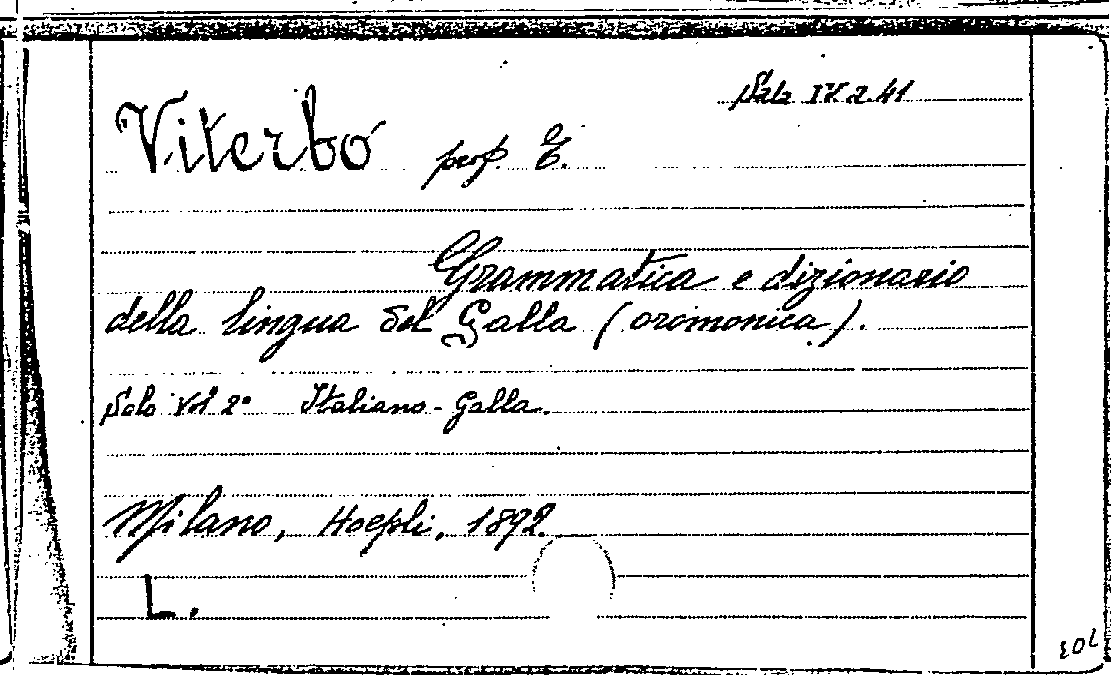 Sala IV 2.41
Viterbo prof. E.
Grammatica e dizionario
della lingua del Galla (oromonica).
Solo Vol 2° Italiano-Galla.
Milano, Hoepli, 1892.
L.
703